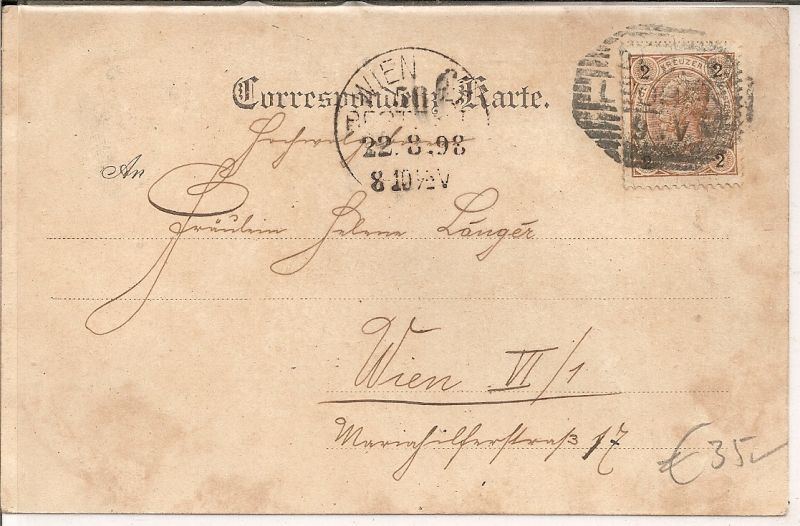 Correspondenz-Karte.
WIEN
BESTELLT
22.8.98
8-10½V
KREUZER
2 2
2 2
An
Hochwohlgeboren
Fräulein Helene Länger
Wien VI/1
Mariahilferstraß 17
€ 35-